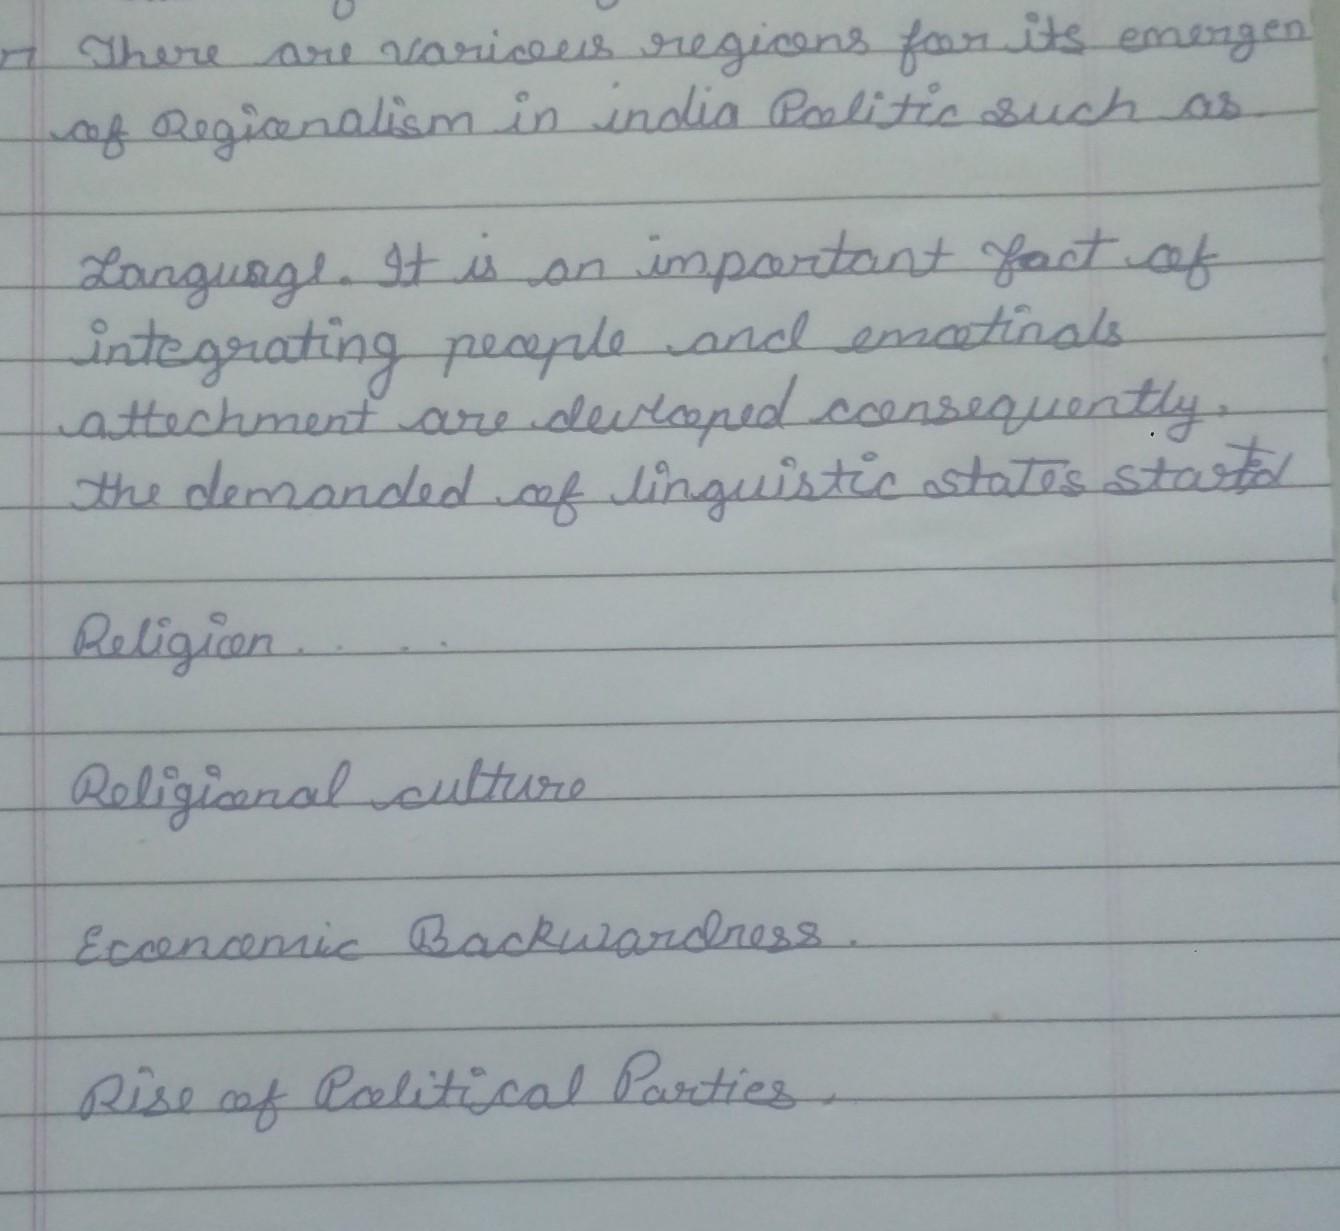 → There are various regions for its emergen
of Regionalism in india Politic such as
Language. It is an important fact of
integrating people and emotinals
attechment are devloped consequently.
the demanded of linguistic states started
Religion. . . . .
Religional culture
Economic Backwardness.
Rise of Political Parties.